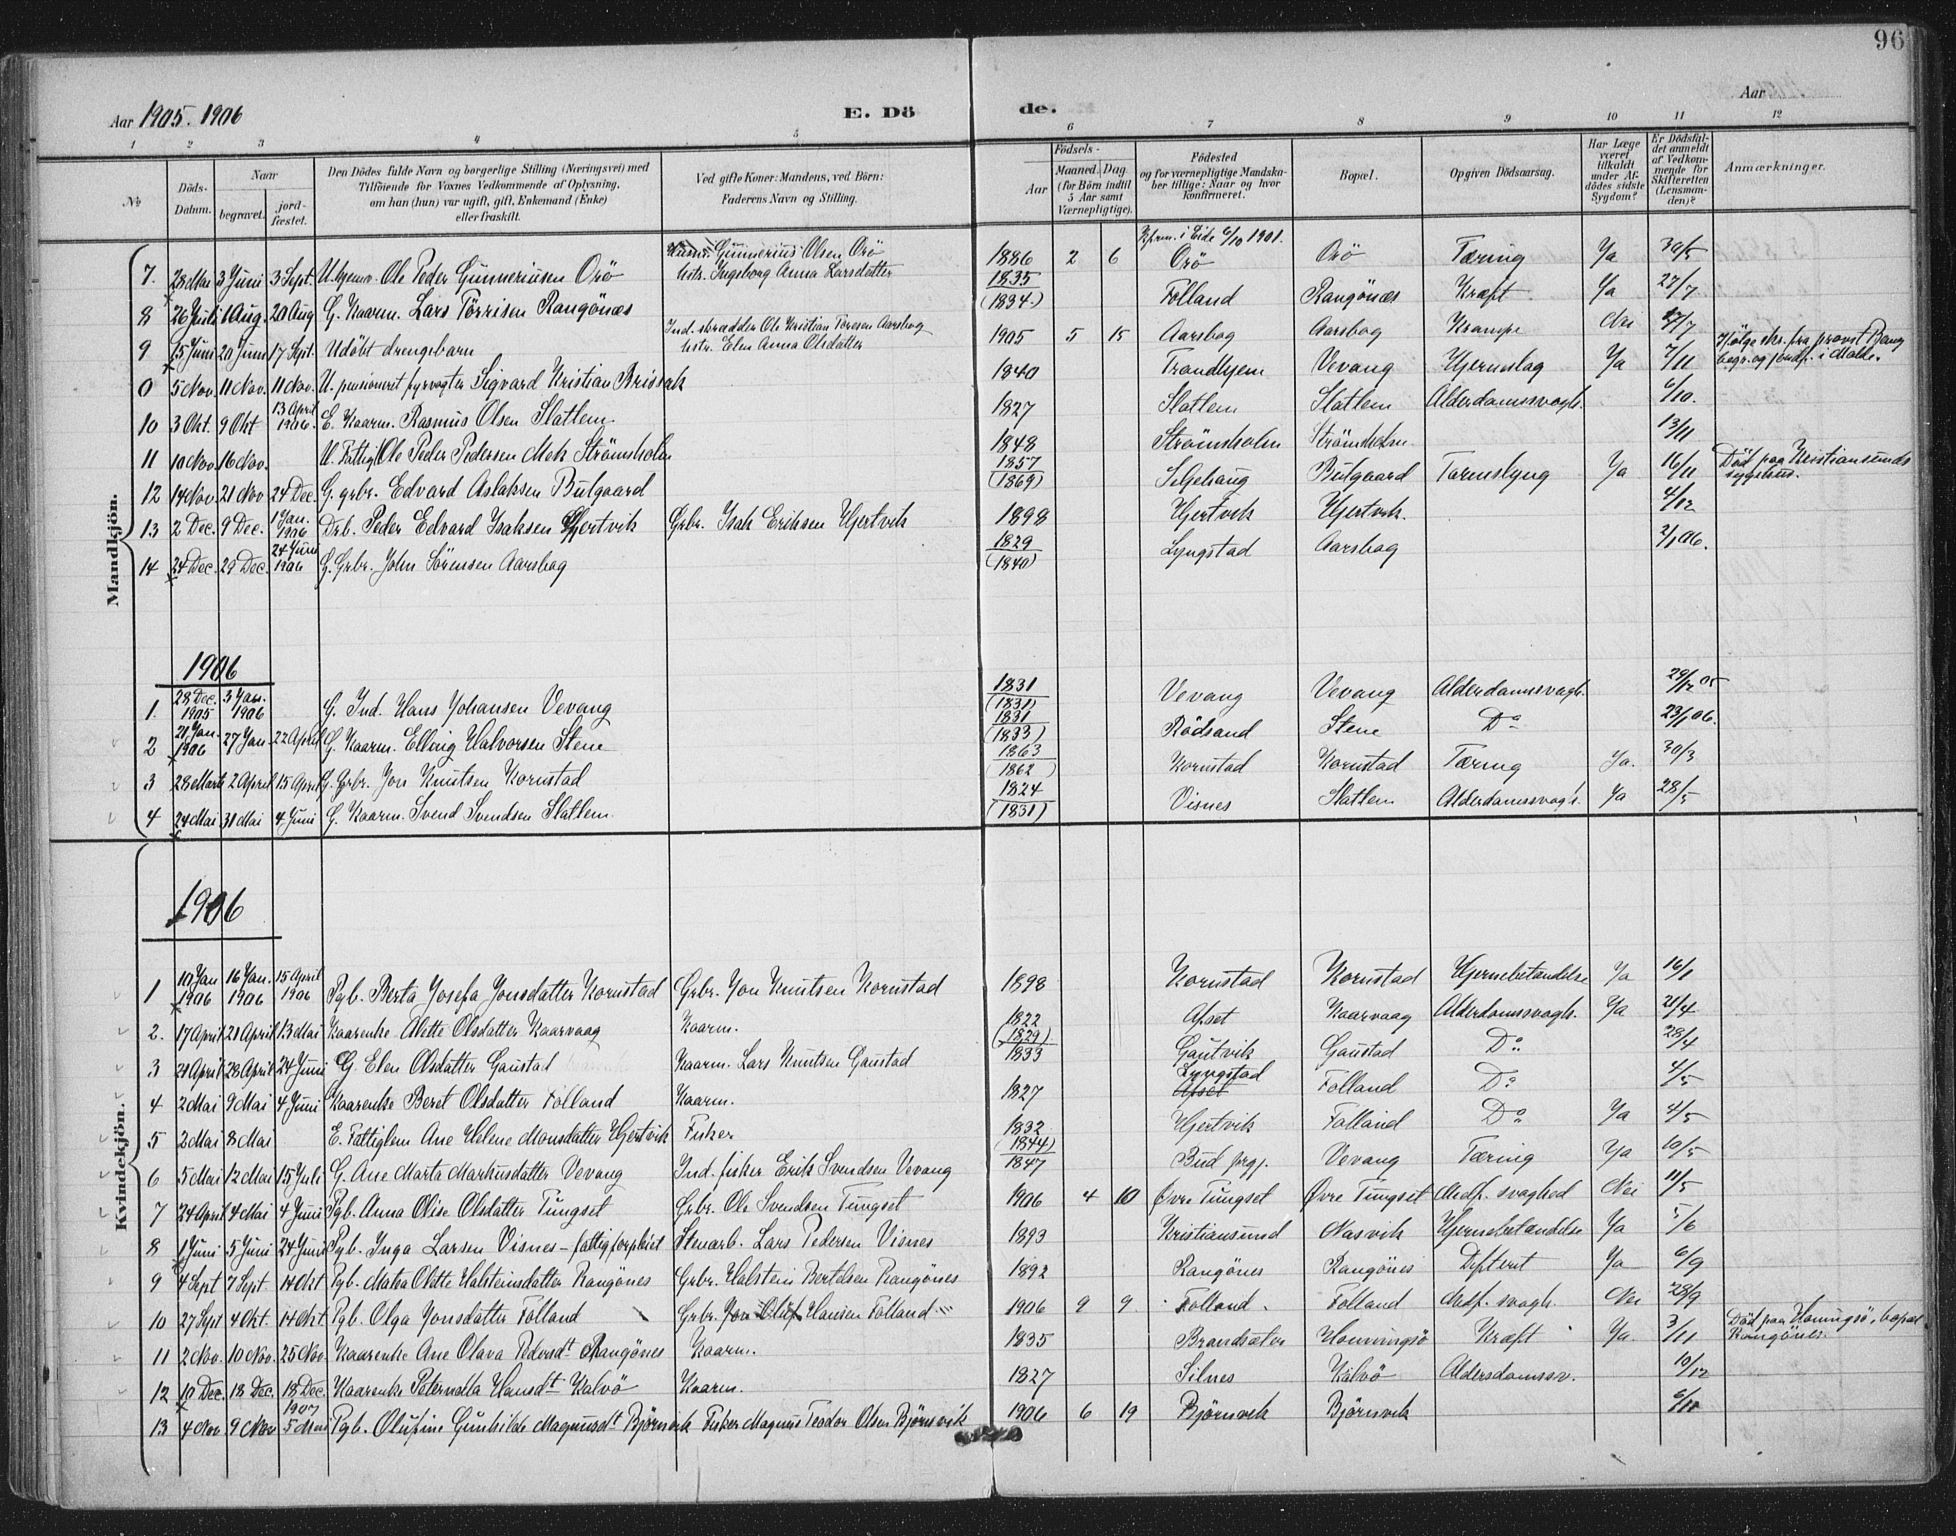 96
Aar 1905. 1906 E. Dö de. Aar
1 2 3 4 5 6 7 8 9 10 11 12
№ Döds-Datum. Naar begravet. jord-fæstet. Den Dödes fulde Navn og borgerlige Stilling (Næringsvei) med Tilföiende for Voxnes Vedkommende af Oplysning, om han (hun) var ugift, gift, Enkemand (Enke) eller fraskilt. Ved gifte Koner: Mandens, ved Börn: Faderens Navn og Stilling. Födsels- Aar Maaned. Dag (for Börn indtil 5 Aar samt Værnepligtige). Födested og for værnepligtige Mandskaber tillige: Naar og hvor konfirmeret. Bopæl. Opgiven Dödsaarsag. Har Læge været tilkaldt under Afdödes sidste Sygdom? Er Dödsfaldet anmeldt af Vedkommende for Skifteretten (Lensmanden)? Anmærkninger.
Mandkjön.
Gunnerius Olsen Orö Kfrm. i Eide 6/10 1901.
7. 28 Mai 3 Juni 3 Sept. Ole Peder Gunneriusen Orö hstr. Ingeborg Anna Larsdatter 1886 2 6 Orö Orö Tæring Ja 30/5
8 26 Juli 1 Aug. 20 Aug G. Kaarm. Lars Törrisen Rangönæs 1835 (1834) Folland Rangönæs Kræft Ja 27/7
9 15 Juni 20 Juni 17 Sept. Udöbt drengebarn Ind. skrædder Ole Kristian Toresen Aarsbog hstr. Elen Anna Olsdatter 1905 5 15 Aarsbog Aarsbog Krampe Nei /7
0 5 Nov. 11 Nov. 11 Nov. U. pensioneret fyrvogter Sigvard Kristian Brissak 1840 Trondhjem Vevang Hjerneslag Ja 7/11 Ifölge skr. fra provst Bang begr. og jordf. i Molde.
10 3 Okt. 9 Okt 13 April 1906. E. Kaarm. Rasmus Olsen Slatlem 1827 Slatlem Slatlem Alderdomssvagh. 6/10.
11 10 Nov 16 Nov. U. Fattigl Ole Peder Pedersen Mek Strömsholm 1848 Strömsholm Strömsholm. 13/11
12 14 Nov 21 Nov 24 Dec. G. grbr. Edvard Aslaksen Bulgaard 1857 (1869) Selgehaug Bulgaard Tarmslyng Ja 16/11 Död paa Kristiansunds sygehus.
13 2 Dec. 9 Dec. 1 Jan. 1906 Drb. Peder Edvard Isaksen Hjertvik Grbr. Isak Eriksen Hjertvik 1898 Hjertvik Hjertvik. 4/12
14 24 Dec. 29 Dec. 24 Juni 1906 G. Grbr. John Sörensen Aarsbog 1829 (1840) Lyngstad Aarsbog 2/1 06.
1906
1. 28 Dec. 1905 3 Jan. 1906 G. Ind. Hans Johansen Vevang 1831 (1831) Vevang Vevang Alderdomssvagh. 29/12 05
2 21 Jan. 1906 27 Jan. 22 April G. Kaarm. Elling Halvorsen Stene 1831 (1833) Rödsand Stene Do 23/1 06.
3 28 Marts 2 April 15 April G. Grbr. Jon Knutsen Kornstad 1863 (1862) Kornstad Kornstad Tæring Ja. 30/3
4 24 Mai 31 Mai 4 Juni G. Kaarm. Svend Svendsen Slatlem. 1824 (1831) Visnes Slatlem Alderdomssvagh. Ja 28/5
Kvindekjön.
1906
1 10 Jan 1906 16 Jan. 1906 15 April 1906 Pgb. Berta Josefa Jonsdatter Kornstad Grbr. Jon Knutsen Kornstad 1898 Kornstad Kornstad Hjernebetændelse Ja 16/1
2. 17 April 21 April 13 Mai Kaarenke Alette Olsdatter Kaarvaag Kaarm. 1822 Apset Kaarvaag Alderdomssvagh. Ja 21/4
3 21 April 28 April 24 Juni G. Elen Olsdatter Gaustad Kaarm. Lars Knutsen Gaustad (1829) 1833 Gautvik Gaustad Do. 28/4
4 2 Mai 9 Mai 4 Juni Kaarenke Beret Olsdatter Folland Kaarm. 1827 Lyngstad Apset Folland Do 4/5
5 2 Mai 8 Mai E. Fattiglem Ane Helene Monsdatter Hjertvik Fisker 1832 Hjertvik Folland Do Ja 4/5
6 5 Mai 12 Mai 15 Juli G. Ane Marta Markusdatter Vevang Ind. fisker Erik Svendsen Vevang (1844) 1847 Bud prgj. Vevang Tæring Ja 10/5
7 24 April 4 Mai 4 Juni Pgb. Anna Olise Olsdatter Tungset Grbr. Ole Svendsen Tungset 1906 4 10 Övre Tungset Övre Tungset Medf. svaghed Nei 11/5
8 1 Juni 5 Juni 24 Juni Pgb. Inga Larsen Visnes - fattigforpleiet Stenarb. Lars Pedersen Visnes 1893 Kristiansund Nasvik Hjernebetændelse Ja 5/6
9 4 Sept 7 Sept 14 Okt Pgb. Matea Olette Halsteinsdatter Rangönes Grbr. Halstein Bertelsen Rangönes 1892 Rangönes Rangönes Difterit Ja 6/9
10 27 Sept 4 Okt. 14 Okt Pgb. Olga Jonsdatter Folland Grbr. Jon Oluf Hansen Folland 1906 9 9 Folland. Folland Medf. svagh. Nei 28/9
11 2 Nov. 10 Nov. 25 Nov. Kaarenke Ane Olava Pedersdt Rangönes Kaarm. 1835 Brandsæter Honningsö Kræft Ja 3/11 Död paa Honingsö, bopæl Rangönes.
12 10 Dec. 18 Dec. 18 Dec. Kaarenke Peternella Hansdt Kalvö Kaarm. 1827 Silnes Kalvö Aldersdomssv. 10/12
13 4 Nov 9 Nov 1907 5 Mai Pgb. Olufine Gunhilde Magnusdt Björnvik Fisker Magnus Teodor Olsen Björnsvik 1906 6 19 Björnsvik Björnsvik 6/11